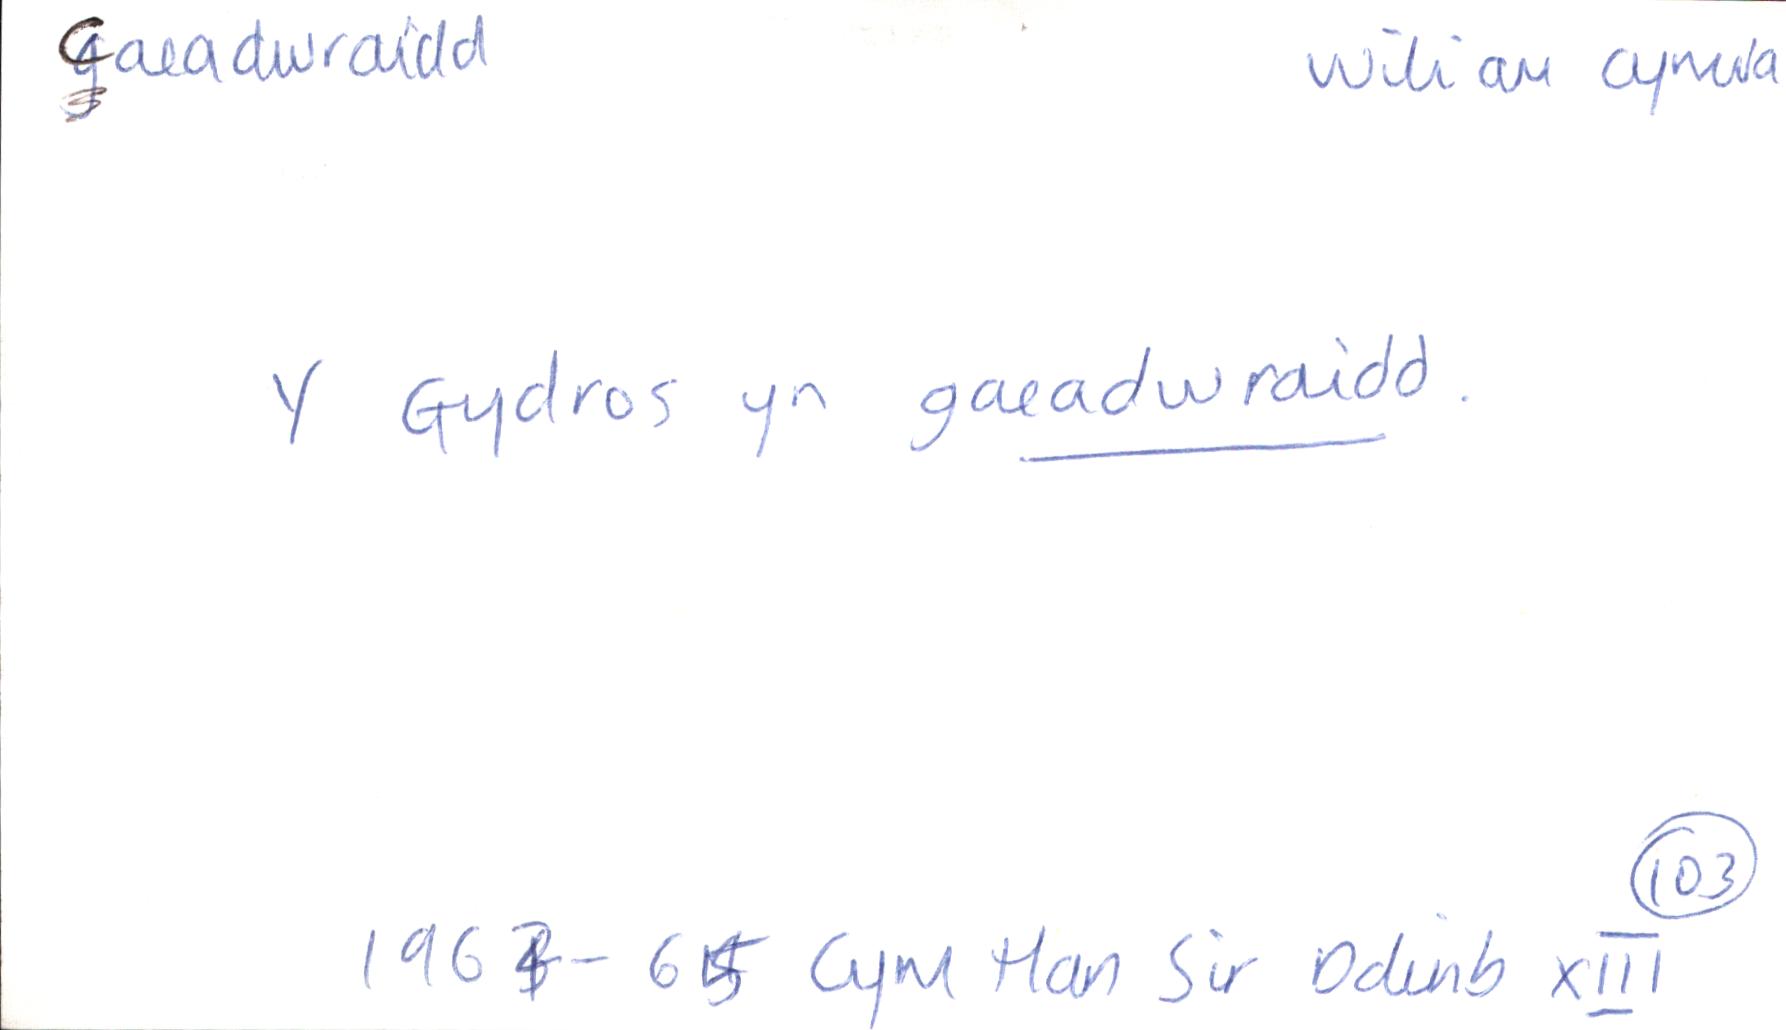 Caeadwraidd Wiliam Cynwa
Y Gydros yn gaeadwraidd.
103
1964-65 Cym Han Sir Ddinb XIII